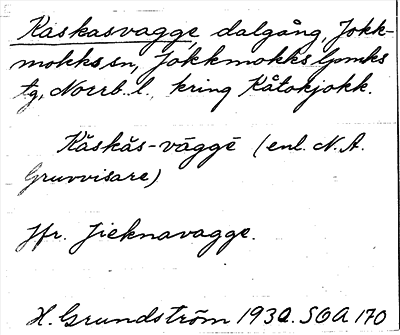 Kaskasvagge, dalgång, Jokk-
mokks sn, Jokkmokks lpmks
tg, Norrb. l., kring Kåtokjokk.
Kăskăs-vāggē (enl. N. A.
Gruvvisare)
Jfr. Jieknavagge.
H. Grundström 1930. SOA 170